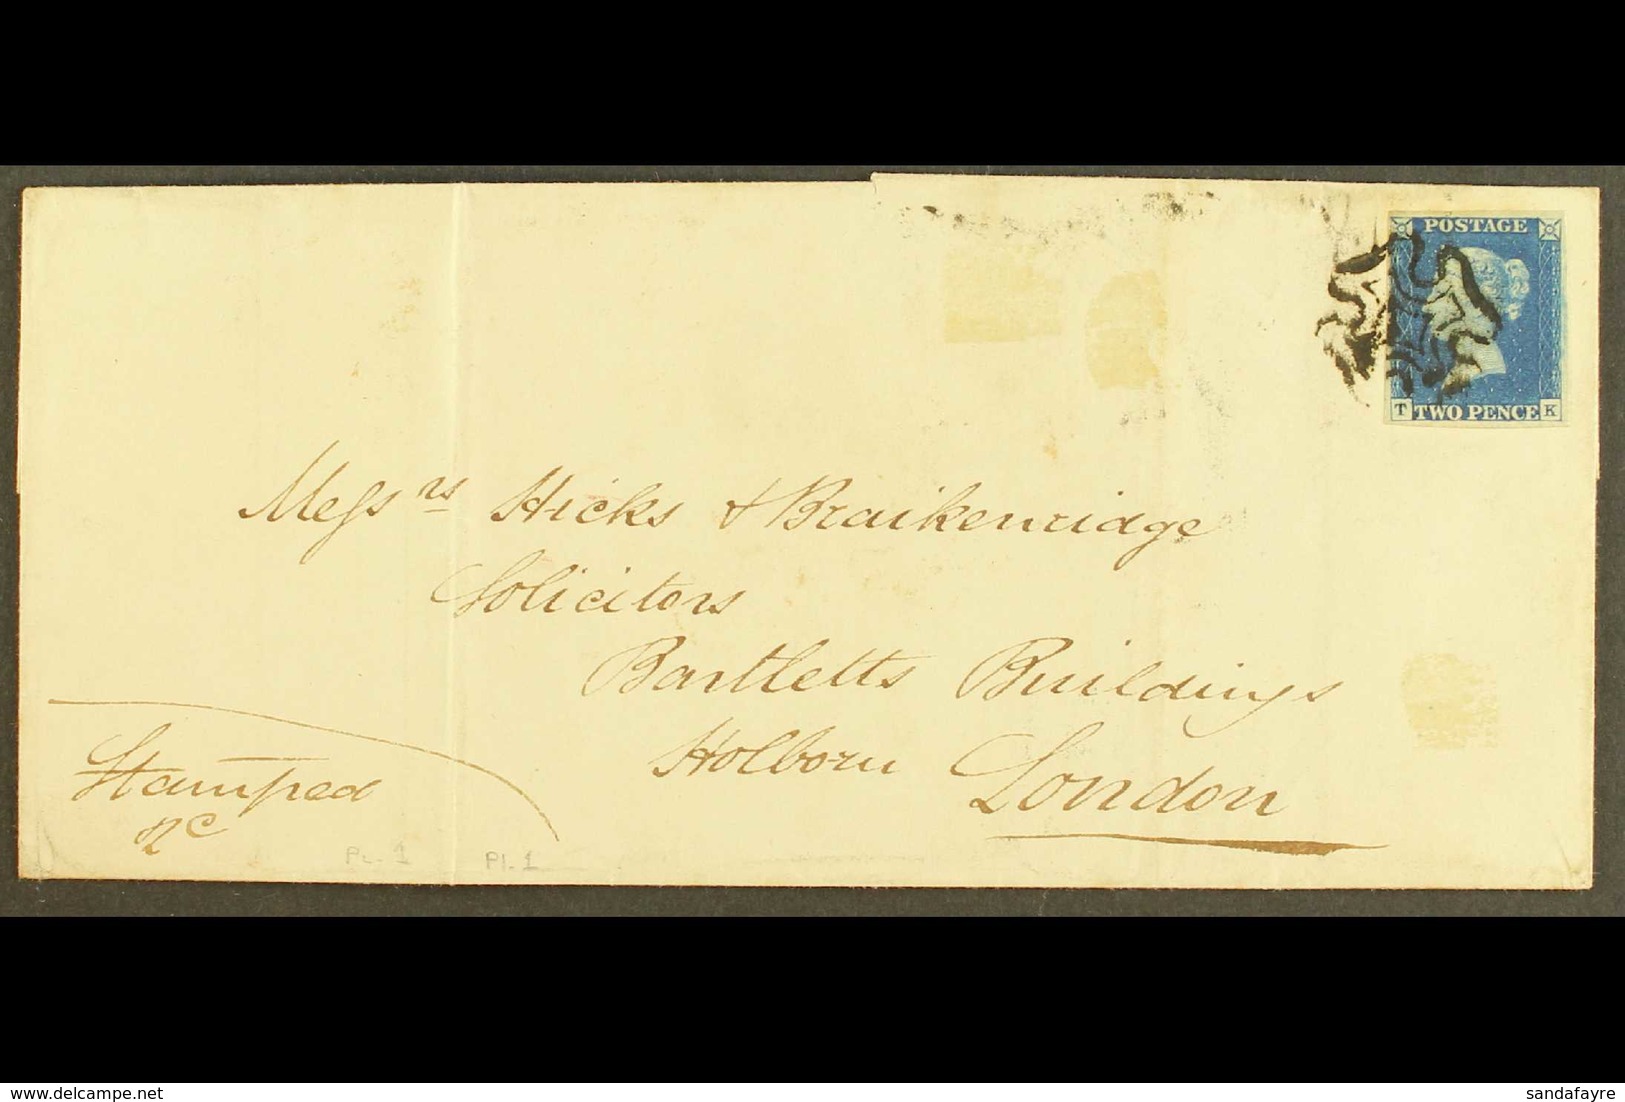 POSTAGE
T TWO PENCE K
Messrs Hicks & Braikenridge
Solicitors
Bartletts Buildings
Holborn London
Stamped
PL. 1 Pl. 1
delcampe.net
sandafayre